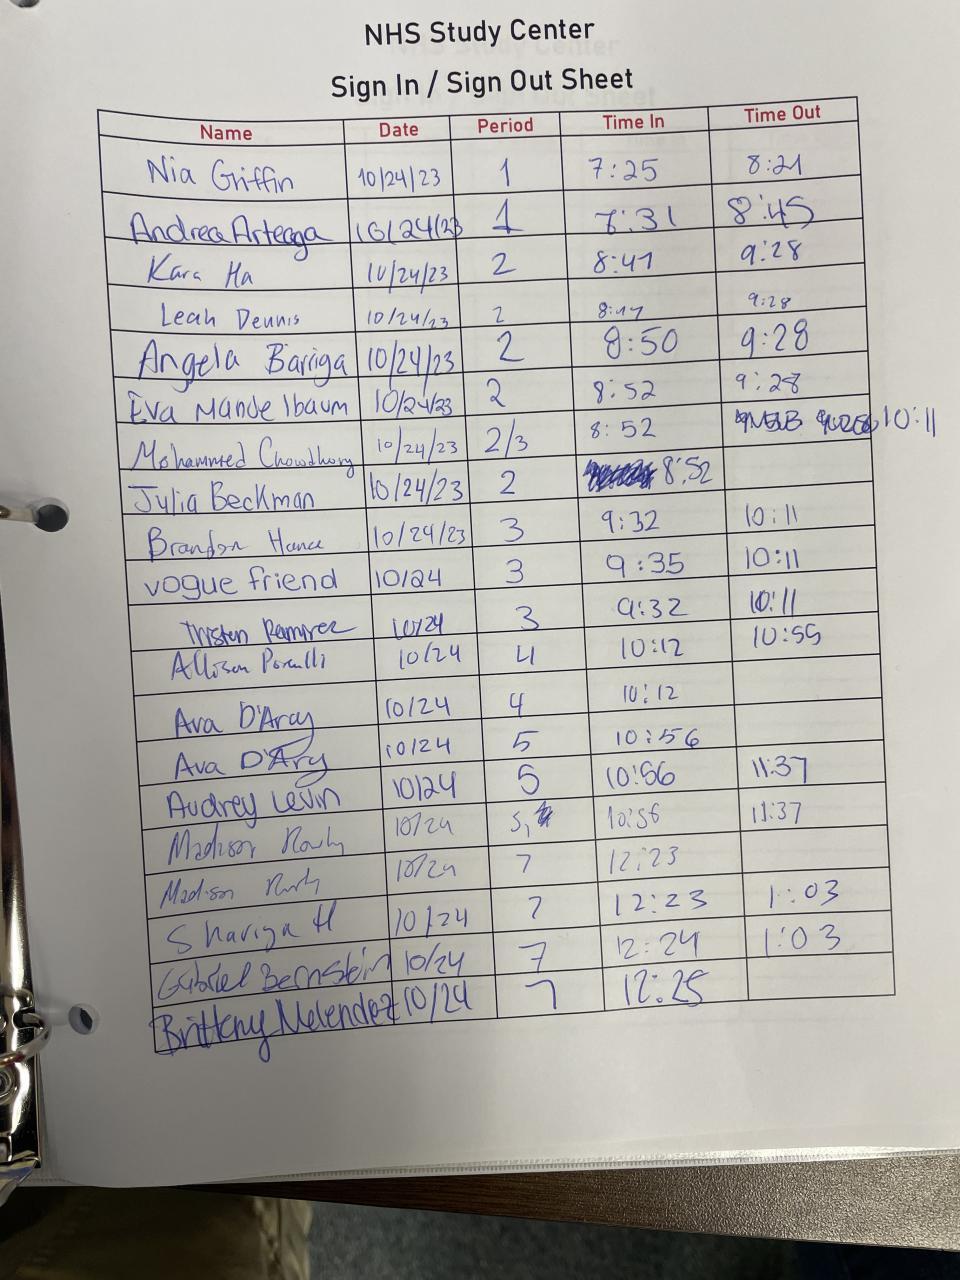 NHS Study Center
Sign In / Sign Out Sheet
Name Date Period Time In Time Out
Nia Griffin 10/24/23 1 7:25 8:21
Andrea Arteaga 10/24/23 1 7:31 8:45
Kara Ha 10/24/23 2 8:47 9:28
Leah Dennis 10/24/23 2 8:47 9:28
Angela Barriga 10/24/23 2 8:50 9:28
Eva Mandelbaum 10/24/23 2 8:52 9:28
Mohammed Chowdhury 10/24/23 2/3 8:52 10:11
Julia Beckman 10/24/23 2 8:52
Brandon 10/24/23 3 9:32 10:11
vogue friend 10/24 3 9:35 10:11
Tristen Ramirez 10/24 3 9:32 10:11
Allison 10/24 4 10:12 10:55
Ava D'Arcy 10/24 4 10:12
Ava D'Arcy 10/24 5 10:56
Audrey Levin 10/24 5 10:56 11:37
Madison 10/24 5, 10:56 11:37
Madison 10/24 7 12:23
Shariga H 10/24 7 12:23 1:03
Gabriel Bernstein 10/24 7 12:24 1:03
Brittany Melendez 10/24 7 12:25